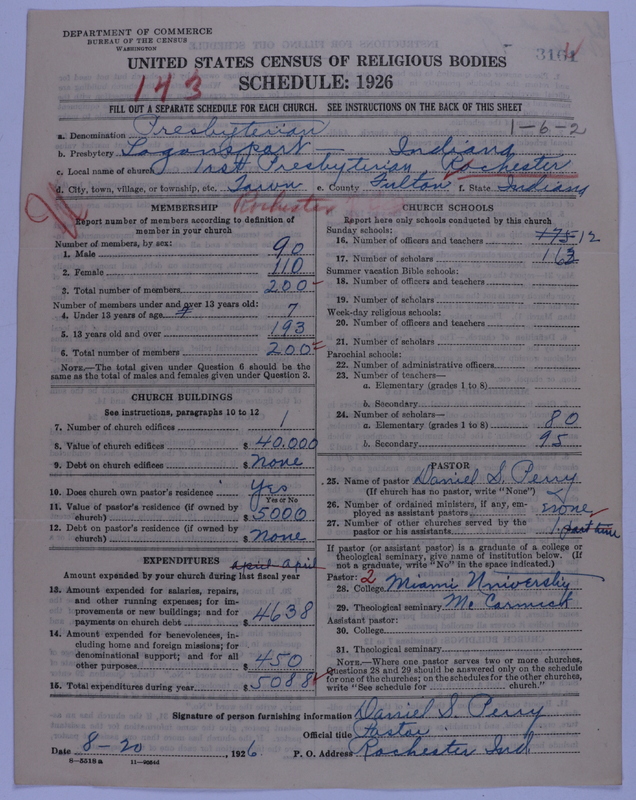 DEPARTMENT OF COMMERCE
BUREAU OF THE CENSUS
WASHINGTON
3161
UNITED STATES CENSUS OF RELIGIOUS BODIES
143
SCHEDULE: 1926
FILL OUT A SEPARATE SCHEDULE FOR EACH CHURCH. SEE INSTRUCTIONS ON THE BACK OF THIS SHEET
a. Denomination Presbyterian 1-6-2
b. Presbytery Logansport Indiana
c. Local name of church 1rst Presbyterian Rochester
d. City, town, village, or township, etc. Town e. County Fulton f. State Indiana
Rochester
MEMBERSHIP
Report number of members according to definition of
member in your church
Number of members, by sex:
1. Male 90
2. Female 110
3. Total number of members 200
Number of members under and over 13 years old:
4. Under 13 years of age 7
5. 13 years old and over 193
6. Total number of members 200
NOTE.—The total given under Question 6 should be the
same as the total of males and females given under Question 3.
CHURCH BUILDINGS
See instructions, paragraphs 10 to 12
7. Number of church edifices 1
8. Value of church edifices $ 40.000
9. Debt on church edifices $ None
10. Does church own pastor's residence Yes
Yes or No
11. Value of pastor's residence (if owned by
church) $ 5000
12. Debt on pastor's residence (if owned by
church) $ None
EXPENDITURES april april
Amount expended by your church during last fiscal year
13. Amount expended for salaries, repairs,
and other running expenses; for im-
provements or new buildings; and for
payments on church debt $ 4638
14. Amount expended for benevolences, in-
cluding home and foreign missions; for
denominational support; and for all
other purposes $ 450
15. Total expenditures during year $ 5088
CHURCH SCHOOLS
Report here only schools conducted by this church
Sunday schools:
16. Number of officers and teachers 175 12
17. Number of scholars 163
Summer vacation Bible schools:
18. Number of officers and teachers
19. Number of scholars
Week-day religious schools:
20. Number of officers and teachers
21. Number of scholars
Parochial schools:
22. Number of administrative officers
23. Number of teachers—
a. Elementary (grades 1 to 8)
b. Secondary
24. Number of scholars—
a. Elementary (grades 1 to 8) 80
b. Secondary 95
PASTOR
25. Name of pastor Daniel S. Perry
(If church has no pastor, write "None")
26. Number of ordained ministers, if any, em-
ployed as assistant pastors none
27. Number of other churches served by the
pastor or his assistants 1 part time
If pastor (or assistant pastor) is a graduate of a college or
theological seminary, give name of institution below. (If
not a graduate, write "No" in the space indicated.)
Pastor: 2
28. College Miami University
29. Theological seminary McCormick
Assistant pastor:
30. College
31. Theological seminary
NOTE.—Where one pastor serves two or more churches,
Questions 28 and 29 should be answered only on the schedule
for one of the churches; on the schedules for the other churches,
write "See schedule for church."
Signature of person furnishing information Daniel S. Perry
Official title Pastor
Date 8-20, 1926. P. O. Address Rochester Ind
8-5518 a